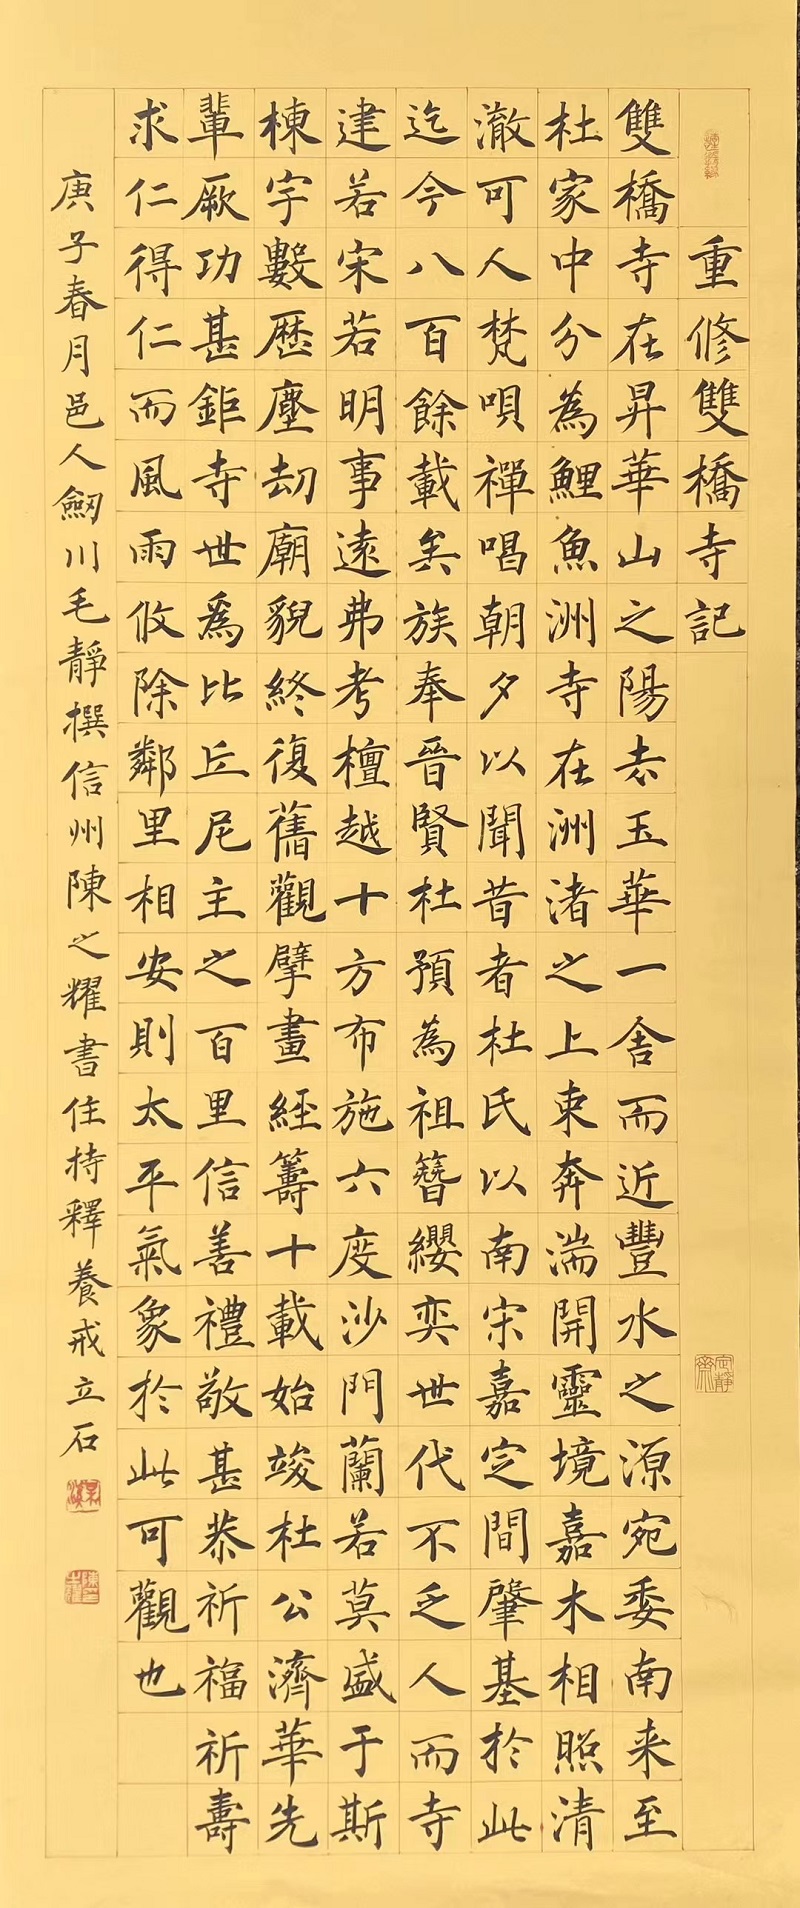 重修雙橋寺記
雙橋寺在昇華山之陽去玉華一舍而近豐水之源宛委南来至
杜家中分為鯉魚洲寺在洲渚之上東奔湍開靈境嘉木相照清
澈可人梵唄禪唱朝夕以聞昔者杜氏以南宋嘉定間肇基於此
迄今八百餘載矣族奉晉賢杜預為祖簪纓奕世代不乏人而寺
建若宋若明事遠弗考檀越十方布施六度沙門蘭若莫盛于斯
棟宇數歷塵劫廟貌終復舊觀擘畫經籌十載始竣杜公濟華先
輩厥功甚鉅寺世爲比丘尼主之百里信善禮敬甚恭祈福祈壽
求仁得仁而風雨攸除鄰里相安則太平氣象於此可觀也
庚子春月邑人劒川毛靜撰信州陳之耀書住持釋養戒立石
定靜齋